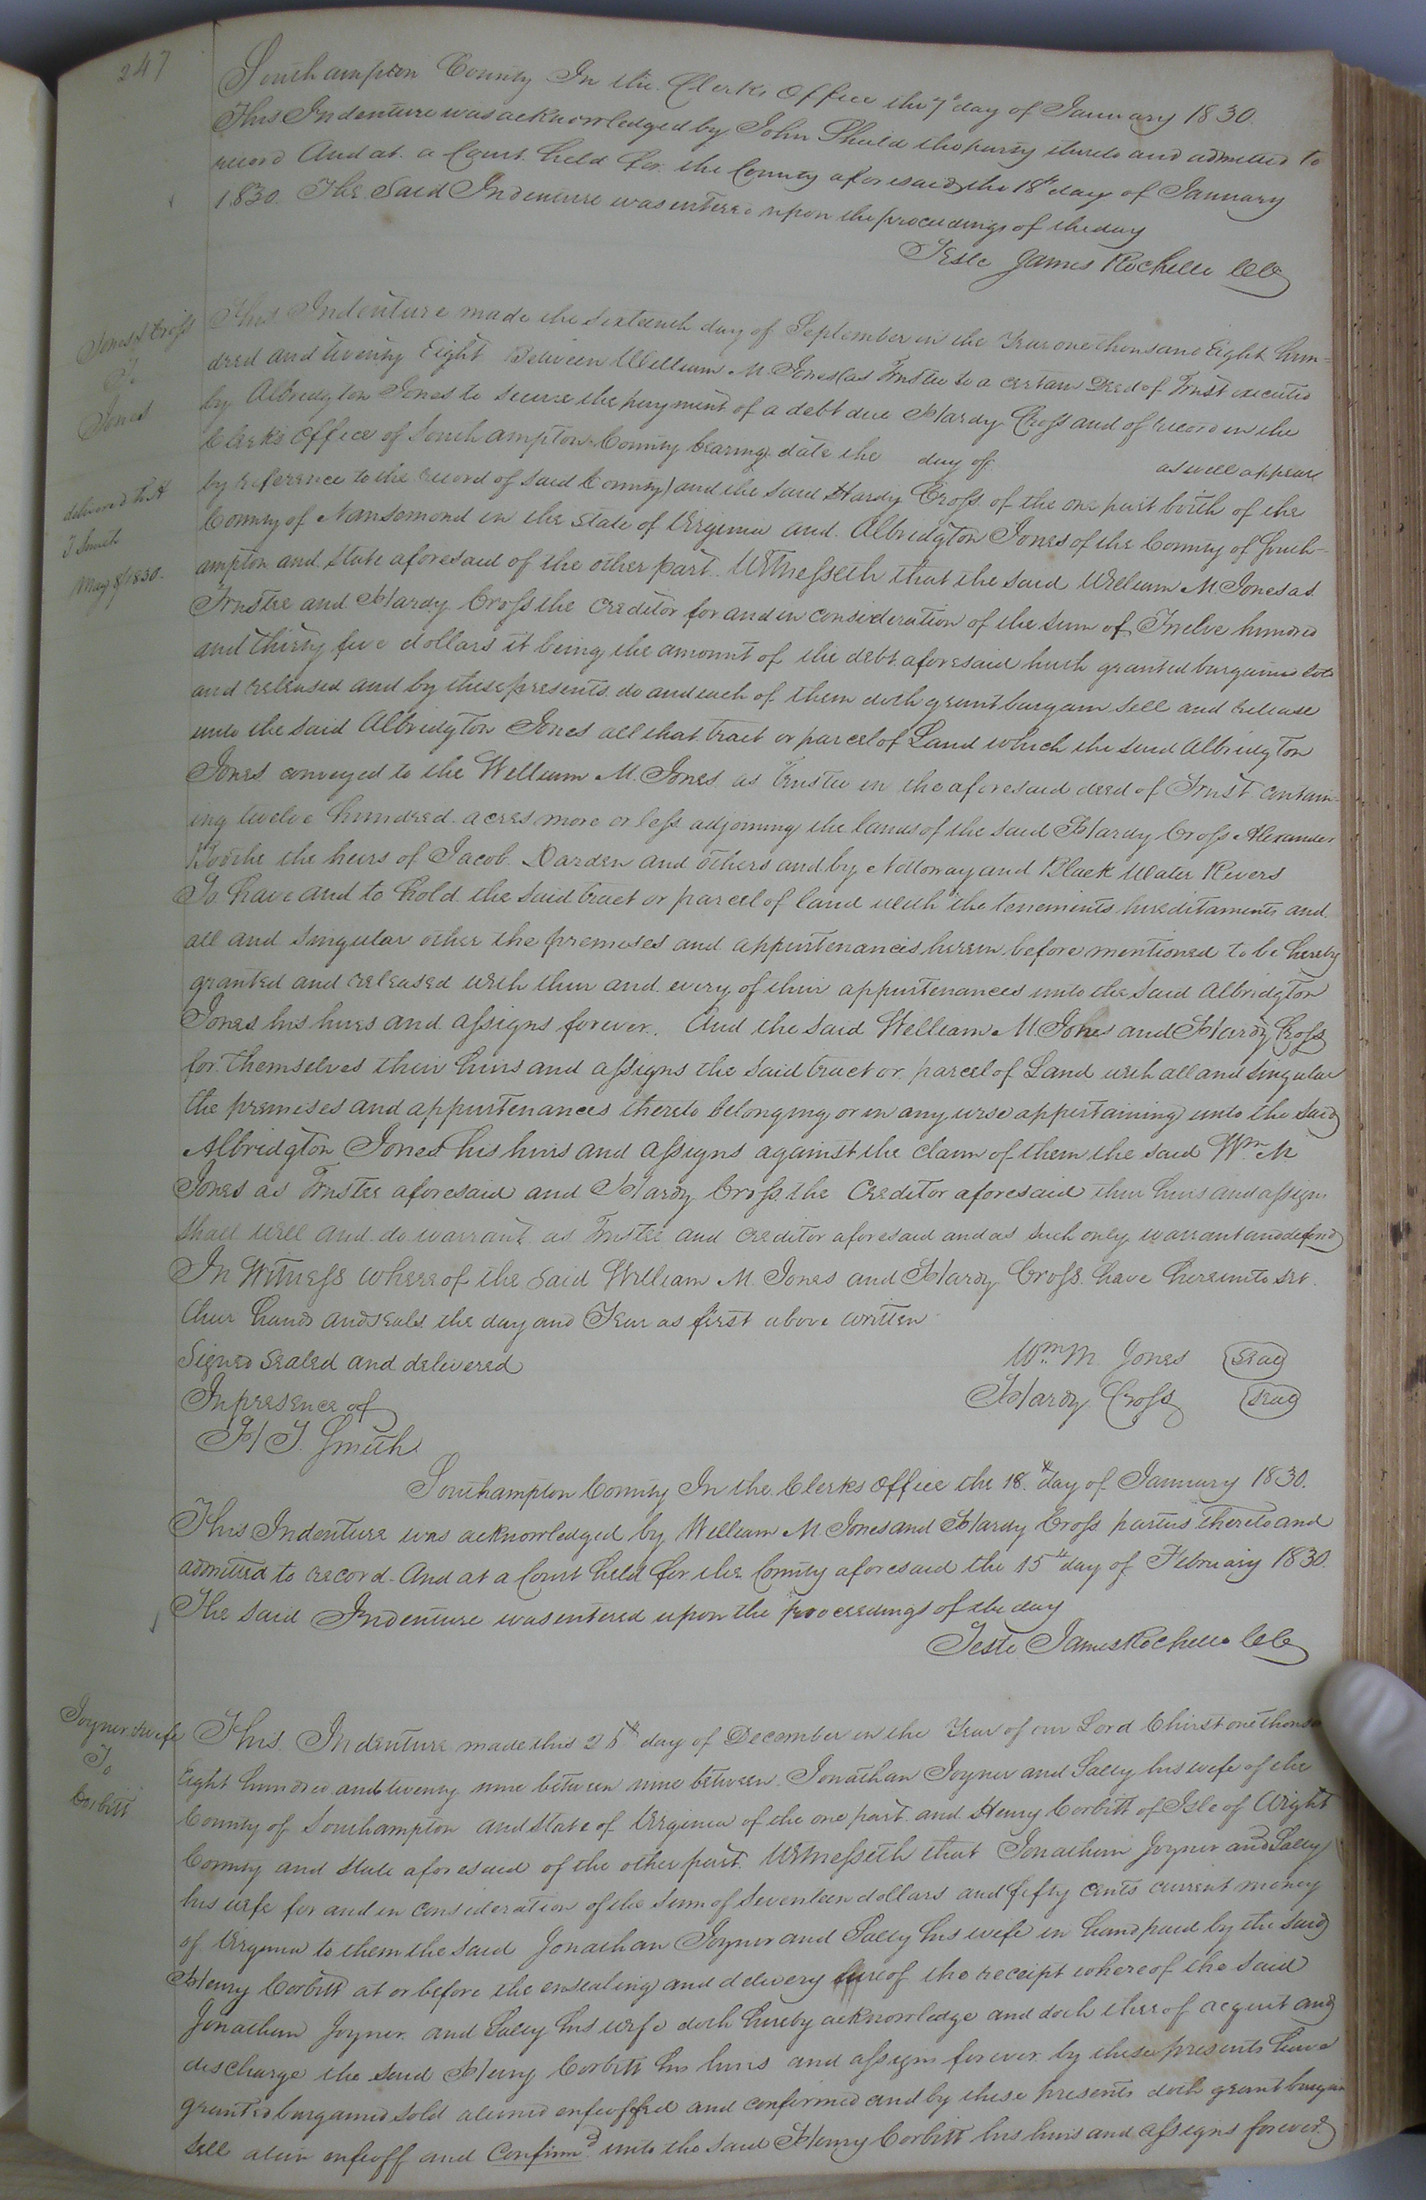 247
Southampton County In the Clerks Office the 7th day of January 1830.
This Indenture was acknowledged by John Sheild the party thereto and admitted to
record And at a Court held for the County aforesaid the 18th day of January
1830. The Said Indenture was entered upon the proceedings of the day
Teste James Rochelle CC
Jones & Cross
To
Jones
delivered to H
T Smith
May 8th 1830.
This Indenture made the Sixteenth day of September in the Year one thousand Eight hun=
dred and twenty Eight Between William M. Jones (as Trustee to a certain Deed of Trust executed
by Albridgton Jones to secure the payment of a debt due Hardy Cross and of record in the
Clerk's Office of Southampton County bearing date the day of as will appear
by reference to the record of said County) and the said Hardy Cross of the one part both of the
County of Nansemond in the State of Virginia and Albridgton Jones of the County of South-
ampton and State aforesaid of the other part. Witnesseth that the said William M Jones as
Trustee and Hardy Cross the Creditor for and in consideration of the sum of Twelve hundred
and thirty five dollars it being the amount of the debt aforesaid hath granted bargained sold
and released and by these presents do and each of them doth grant bargain sell and release
unto the said Albridgton Jones all that tract or parcel of Land which the said Albridgton
Jones conveyed to the William M. Jones as trustee in the aforesaid deed of Trust contain-
ing twelve hundred acres more or less adjoining the lands of the said Hardy Cross Alexander
the heirs of Jacob Darden and others and by Nottoway and Black Water Rivers
To have and to hold the said tract or parcel of land with the tenements hereditaments and
all and singular other the premises and appurtenances herein before mentioned to be hereby
granted and released with their and every of their appurtenances unto the said Albridgton
Jones his heirs and assigns forever. And the said William M Jones and Hardy Cross
for themselves their heirs and assigns the said tract or parcel of Land with all and singular
the premises and appurtenances thereto belonging or in any wise appertaining unto the said
Albridgton Jones his heirs and assigns against the claim of them the said Wm M
Jones as Trustee aforesaid and Hardy Cross the Creditor aforesaid their heirs and assigns
shall will and do warrant as Trustee and creditor aforesaid and as such only warrant and defend
In Witness whereof the said William M. Jones and Hardy Cross have hereunto set
their hands and seals the day and Year as first above written
Signed Sealed and delivered
In presence of
H T. Smith
Wm. M. Jones Seal
Hardy Cross Seal
Southampton County In the Clerks Office the 18th day of January 1830.
This Indenture was acknowledged by William M Jones and Hardy Cross parties thereto and
admitted to record. And at a Court held for the County aforesaid the 15th day of February 1830.
The said Indenture was entered upon the proceedings of the day
Teste James Rochelle CC
Joyner & wife
To
Corbitt
This Indenture made this 28th day of December in the Year of our Lord Christ one thousa
Eight hundred and twenty nine between nine between Jonathan Joyner and Sally his wife of the
County of Southampton and State of Virginia of the one part and Henry Corbitt of Isle of Wight
County and State aforesaid of the other part. Witnesseth that Jonathan Joyner and Sally
his wife for and in consideration of the sum of Seventeen dollars and fifty cents current money
of Virginia to them the said Jonathan Joyner and Sally his wife in hand paid by the said
Henry Corbitt at or before the ensealing and delivery hereof the receipt whereof the said
Jonathan Joyner and Sally his wife doth hereby acknowledge and doth thereof acquit and
discharge the said Henry Corbitt his heirs and assigns forever by these presents have
granted bargained sold aliened enfeoffed and confirmed and by these presents doth grant bargan
sell alien enfeoff and Confirmd unto the said Henry Corbitt his heirs and assigns forever